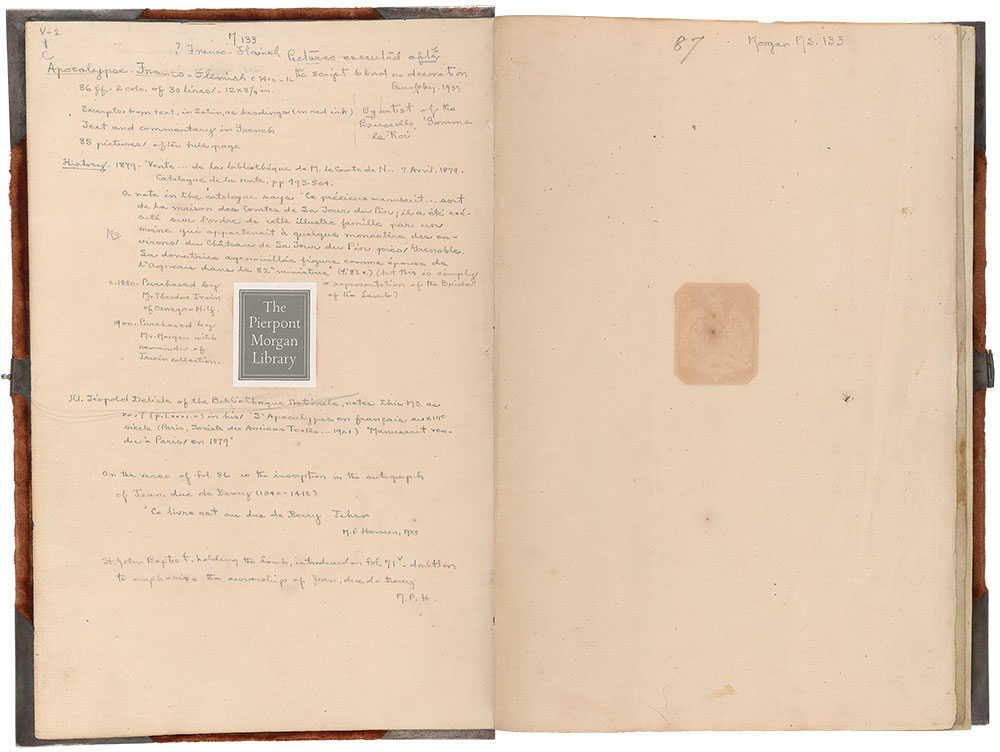 V-2
1
C
M 133
? Franco-Flemish Pictures executed after
Apocalypse - Franco-Flemish c. the script & border decoration
86 ff. - 2 cols. of 30 lines - 12 x 8 in. Panofsky, 1933
Excerpts from text, in Latin, as headings (in red ink) By artist of the
Text and commentary in French Brussels "Somme
85 pictures often full page le Roi"
History - 1879 - Vente ... de la bibliothèque de M. le Comte de N... 7 Avril, 1879 -
Catalogue de la vente, pp. 493-504.
A note in the catalogue says "Ce précieux manuscrit ... sort
de la maison des Comtes de La Tour du Pin; il a été exé-
cuté sur l'ordre de cette illustre famille par un
No moine qui appartenait à quelque monastère des en-
virons du Château de La Tour du Pin près Grenoble.
La donatrice agenouillée figure comme épouse de
l'Agneau dans le 82me miniature" (f. 82 v.) (but this is simply
a representation of the Bride
of the Lamb)
c. 1880 - Purchased by
Mr. Theodore Irwin
of Oswego - N.Y.
1900 - Purchased by
Mr. Morgan with
remainder of
Irwin collection.
The
Pierpont
Morgan
Library
M. Léopold Delisle of the Bibliothèque Nationale, notes this MS. as
no. 7 in his "L'Apocalypse en français au XIIIe
siècle (Paris, Société des Anciens Textes ... 1901) "Manuscrit ven-
du à Paris en 1879"
On the verso of fol. 86 is the inscription in the autograph
of Jean, duc de Berry (1340-1416)
"Ce livre est au duc de Berry Jehan
M.P. Harrsen, 1933
St. John Baptist, holding the Lamb, introduced on fol. 71v - doubtless
to emphasize the ownership of Jean, duc de Berry
M.P.H.
87
Morgan MS. 133